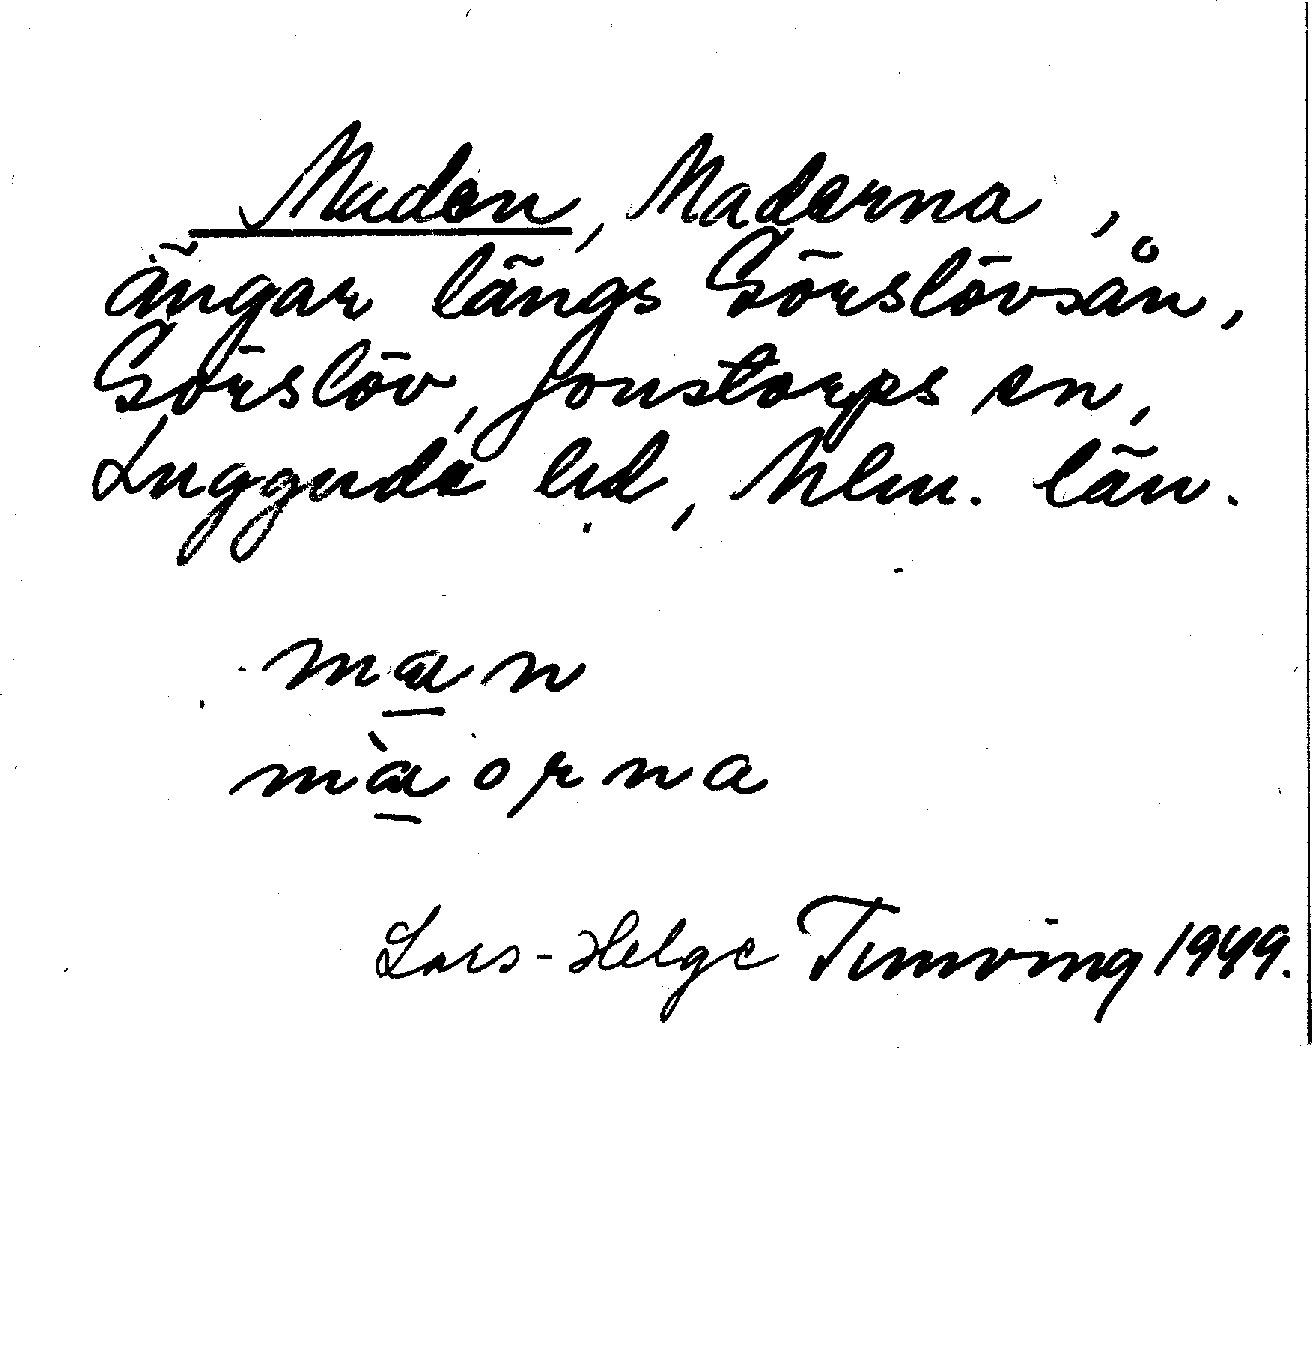 Maden, Maderna,
ängar längs Görslövsån,
Görslöv, Jonstorps sn,
Luggude hd, Mlm. län.
man
màorna
Lars-Helge Tunving 1949.